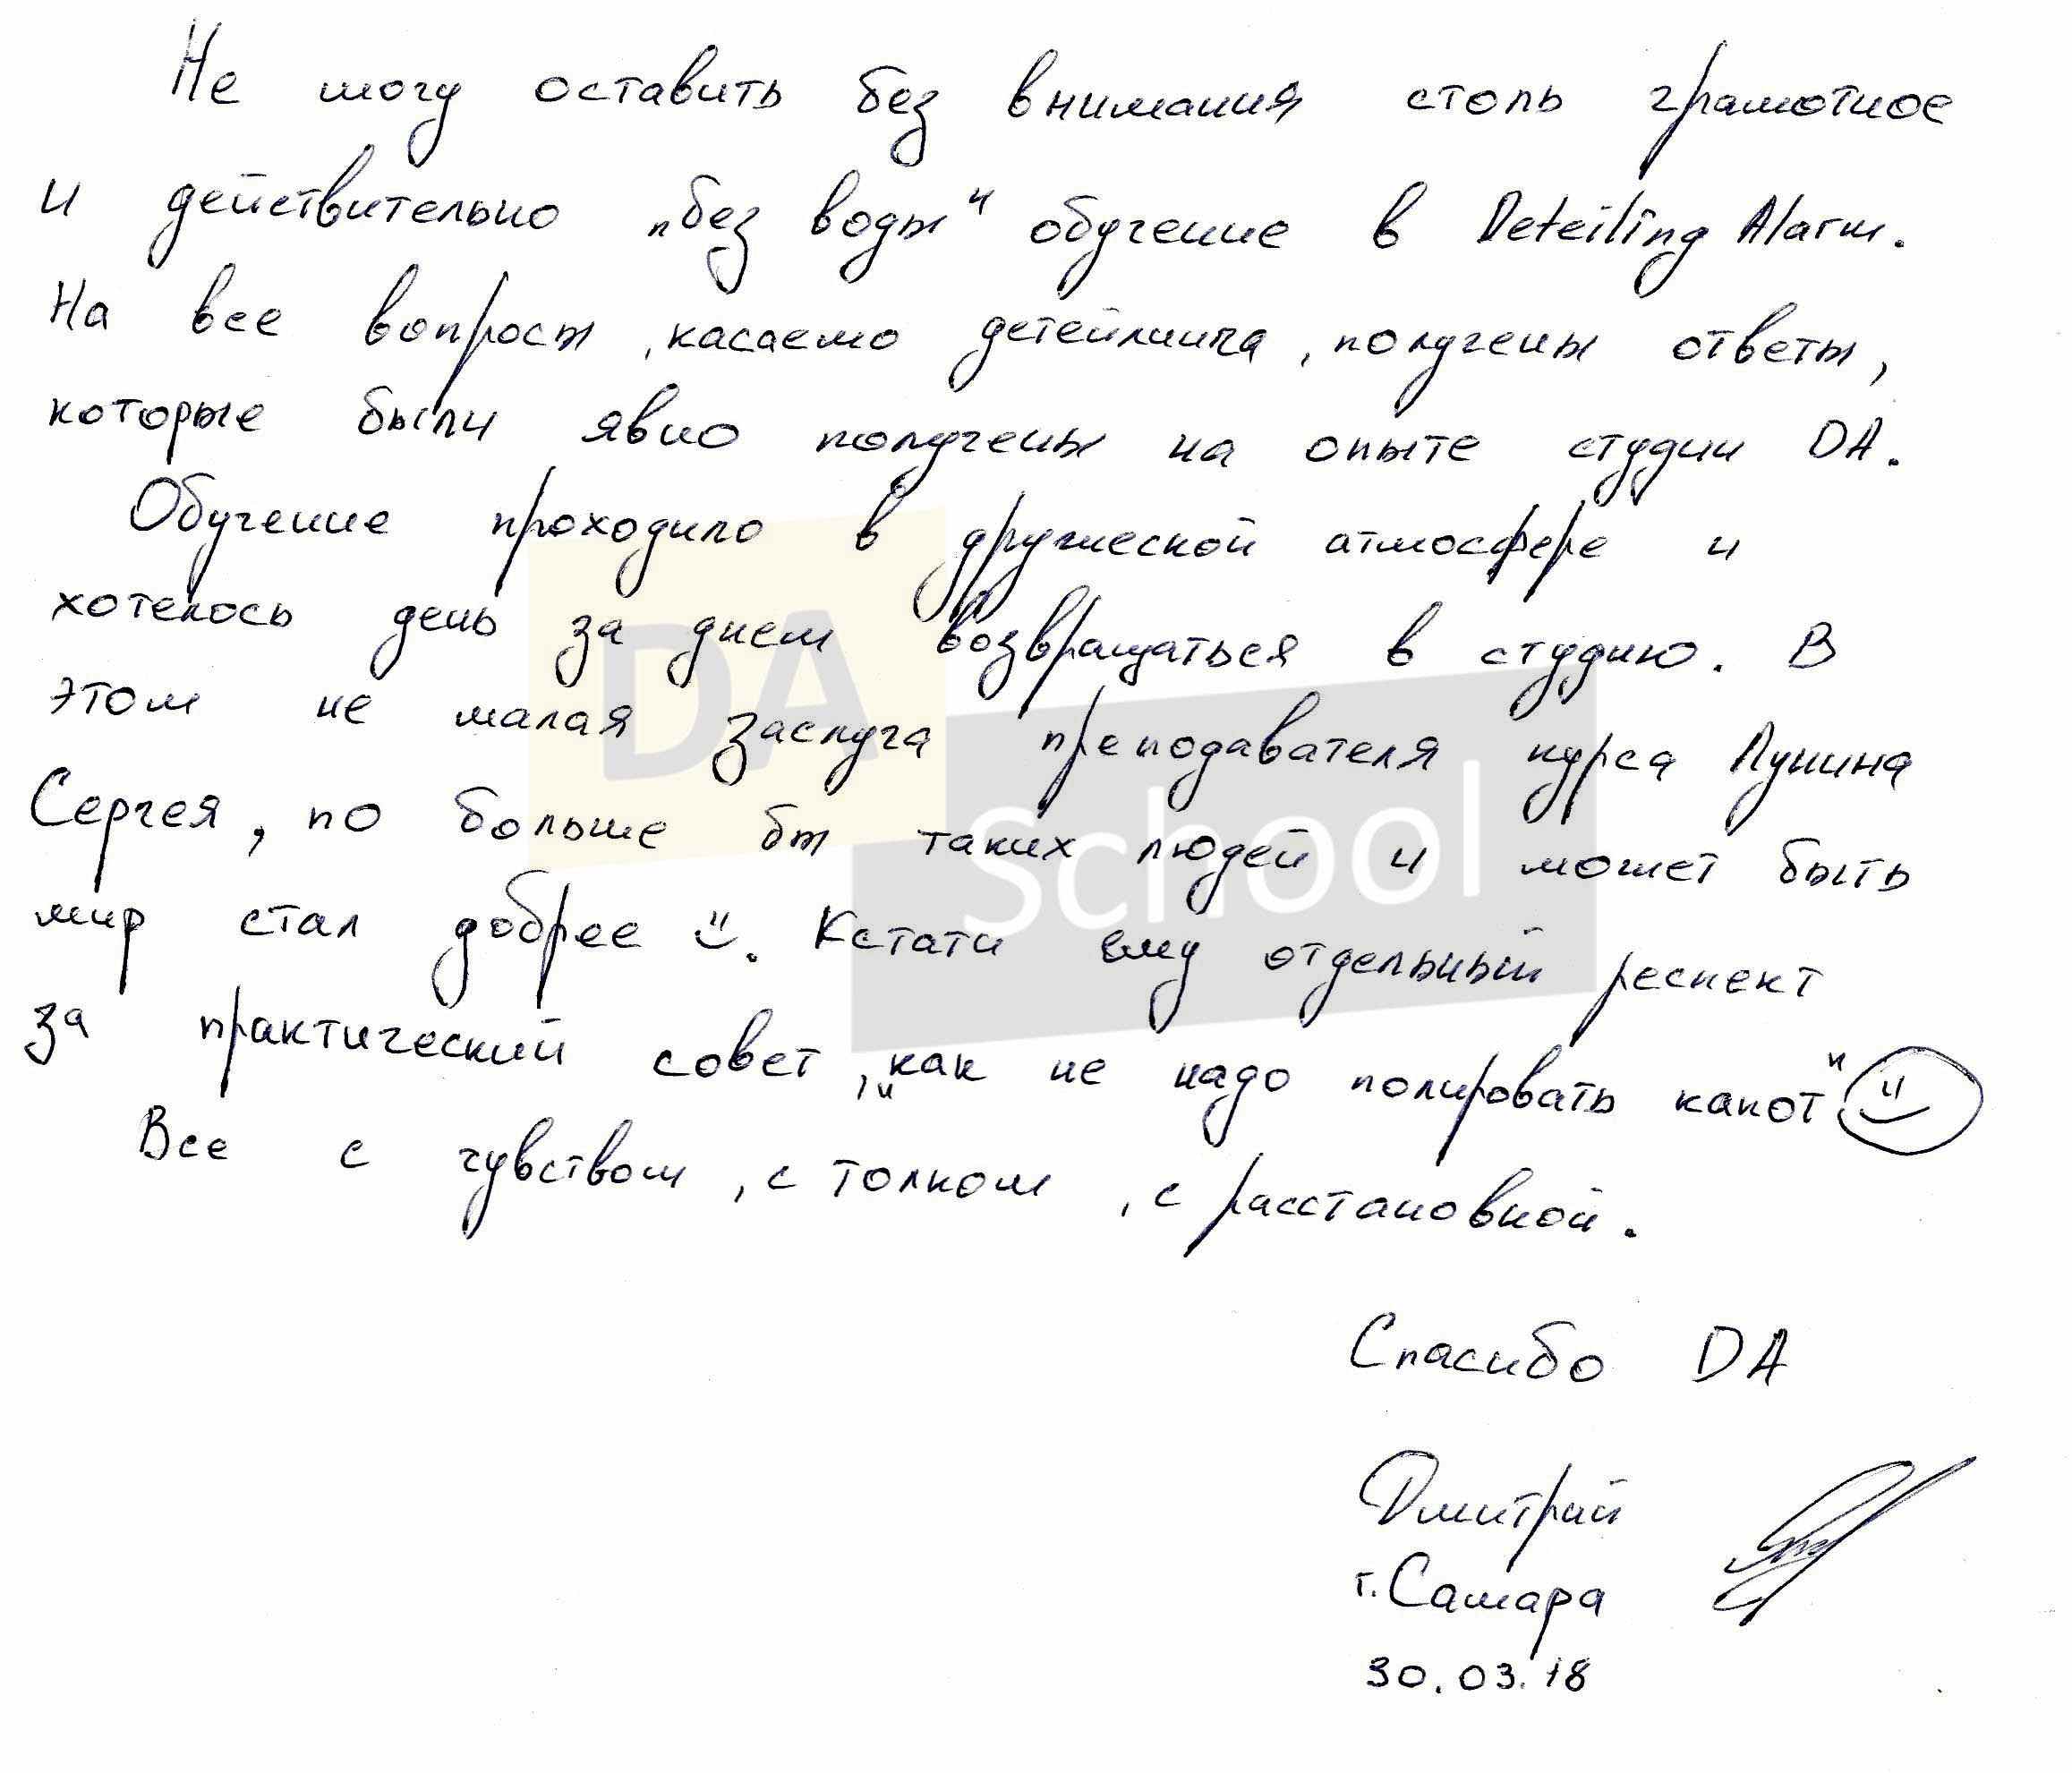 Не могу оставить без внимания столь грамотное
и действительно „без воды“ обучение в Deteiling Alarm.
На все вопросы, касаемо детейлинга, получены ответы,
которые были явно получены на опыте студии DA.
Обучение проходило в дружеской атмосфере и
хотелось день за днем возвращаться в студию. В
этом не малая заслуга преподавателя курса Лунина
Сергея, по больше бы таких людей и может быть
мир стал добрее. Кстати ему отдельный респект
за практический совет, „как не надо полировать капот“
Все с чувством, с толком, с расстановкой.
DA
School
Спасибо DA
Дмитрий
г. Самара
30.03.18